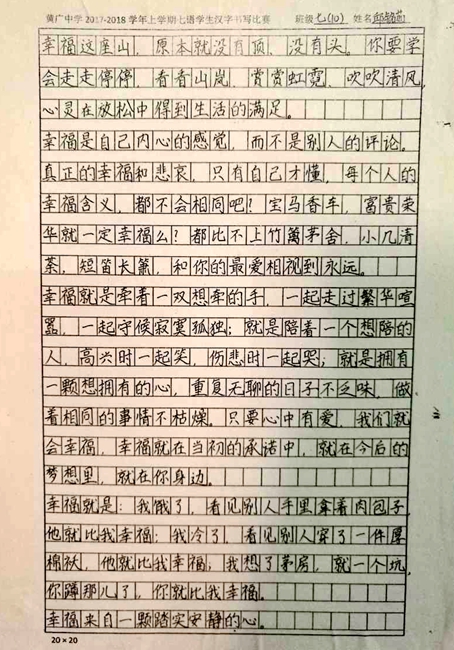 黄广中学2017-2018学年上学期七语学生汉字书写比赛 班级 七(10) 姓名 邱
幸福这座山，原本就没有顶，没有头。你要学
会走走停停，看看山岚，赏赏虹霓，吹吹清风，
心灵在放松中得到生活的满足。
幸福是自己内心的感觉，而不是别人的评论。
真正的幸福和悲哀，只有自己才懂，每个人的
幸福含义，都不会相同吧？宝马香车，富贵荣
华就一定幸福么？都比不上竹篱茅舍，小几清
茶，短笛长箫，和你的最爱相视到永远。
幸福就是牵着一双想牵的手，一起走过繁华喧
嚣，一起守候寂寞孤独；就是陪着一个想陪的
人，高兴时一起笑，伤悲时一起哭；就是拥有
一颗想拥有的心，重复无聊的日子不乏味，做
着相同的事情不枯燥。只要心中有爱，我们就
会幸福，幸福就在当初的承诺中，就在今后的
梦想里，就在你身边。
幸福就是：我饿了，看见别人手里拿着肉包子，
他就比我幸福；我冷了，看见别人穿了一件厚
棉袄，他就比我幸福；我想了茅房，就一个坑，
你蹲那儿了，你就比我幸福。
幸福来自一颗踏实安静的心。
20×20